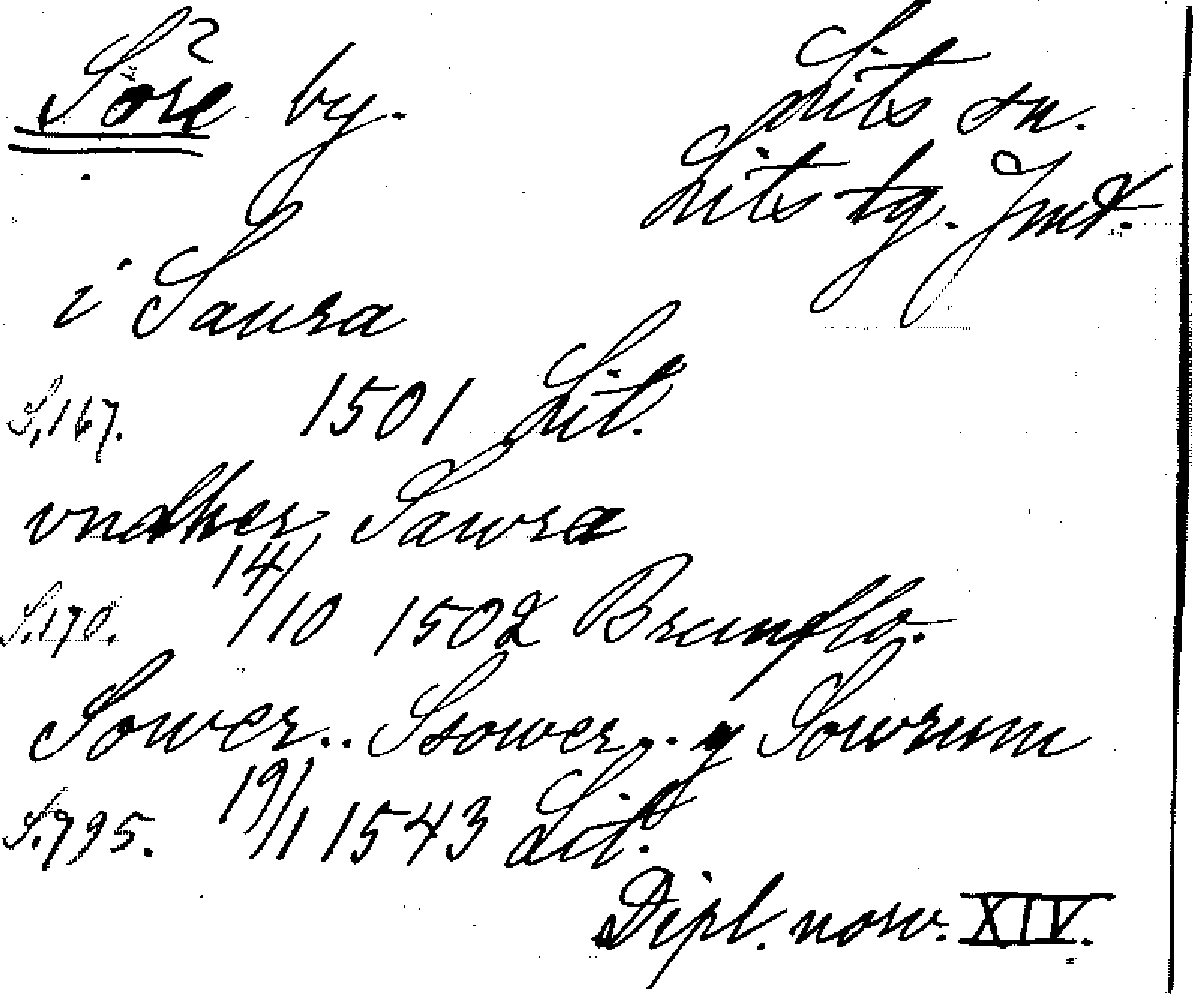 Söre by.
Lits sn.
Lits tg. Jmt.
i Saura
S. 167. 1501 Lit.
vndher Sawra
S. 170. 14/10 1502 Brunflo.
Sower.. Ssower.. y Sowrum
S. 795. 19/1 1543 Lit.
Dipl. norv. XIV.